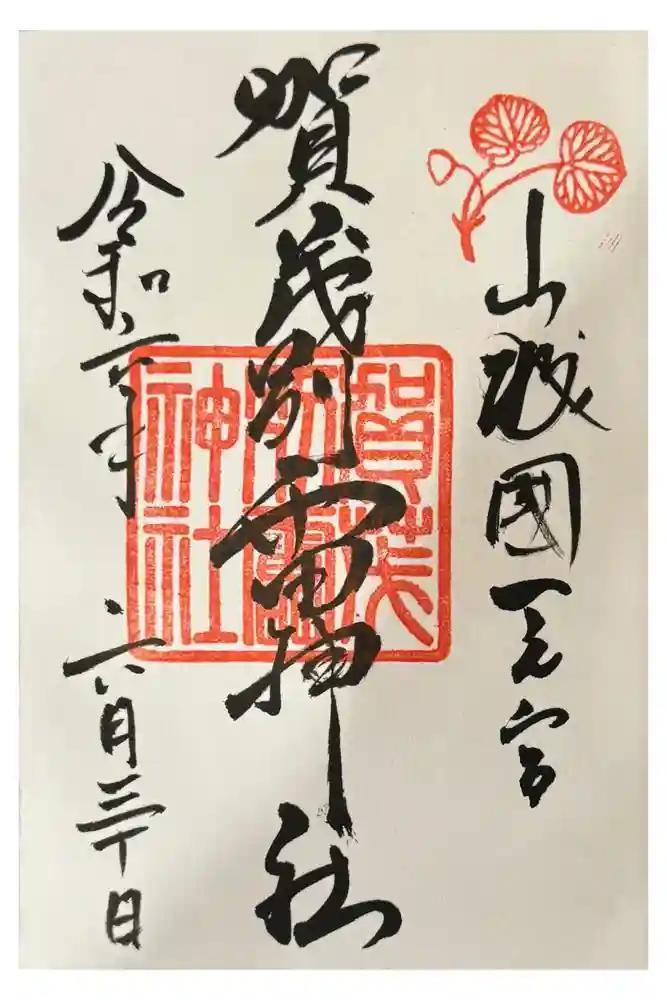 山城國一之宮
賀茂別雷神社
賀茂
別雷
神社
令和六年 六月三十日